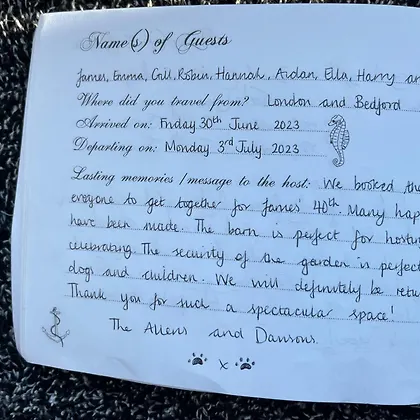 Name(s) of Guests
James, Emma, Gill, Robin, Hannah, Aidan, Ella, Harry an
Where did you travel from? London and Bedford
Arrived on: Friday 30th June 2023
Departing on: Monday 3rd July 2023
Lasting memories / message to the host: We booked the
everyone to get together for James' 40th. Many hap
have been made. The barn is perfect for hosti
celebrating. The security of the garden is perfect
dogs and children. We will definitely be retu
Thank you for such a spectacular space!
The Allens and Dawsons.
x